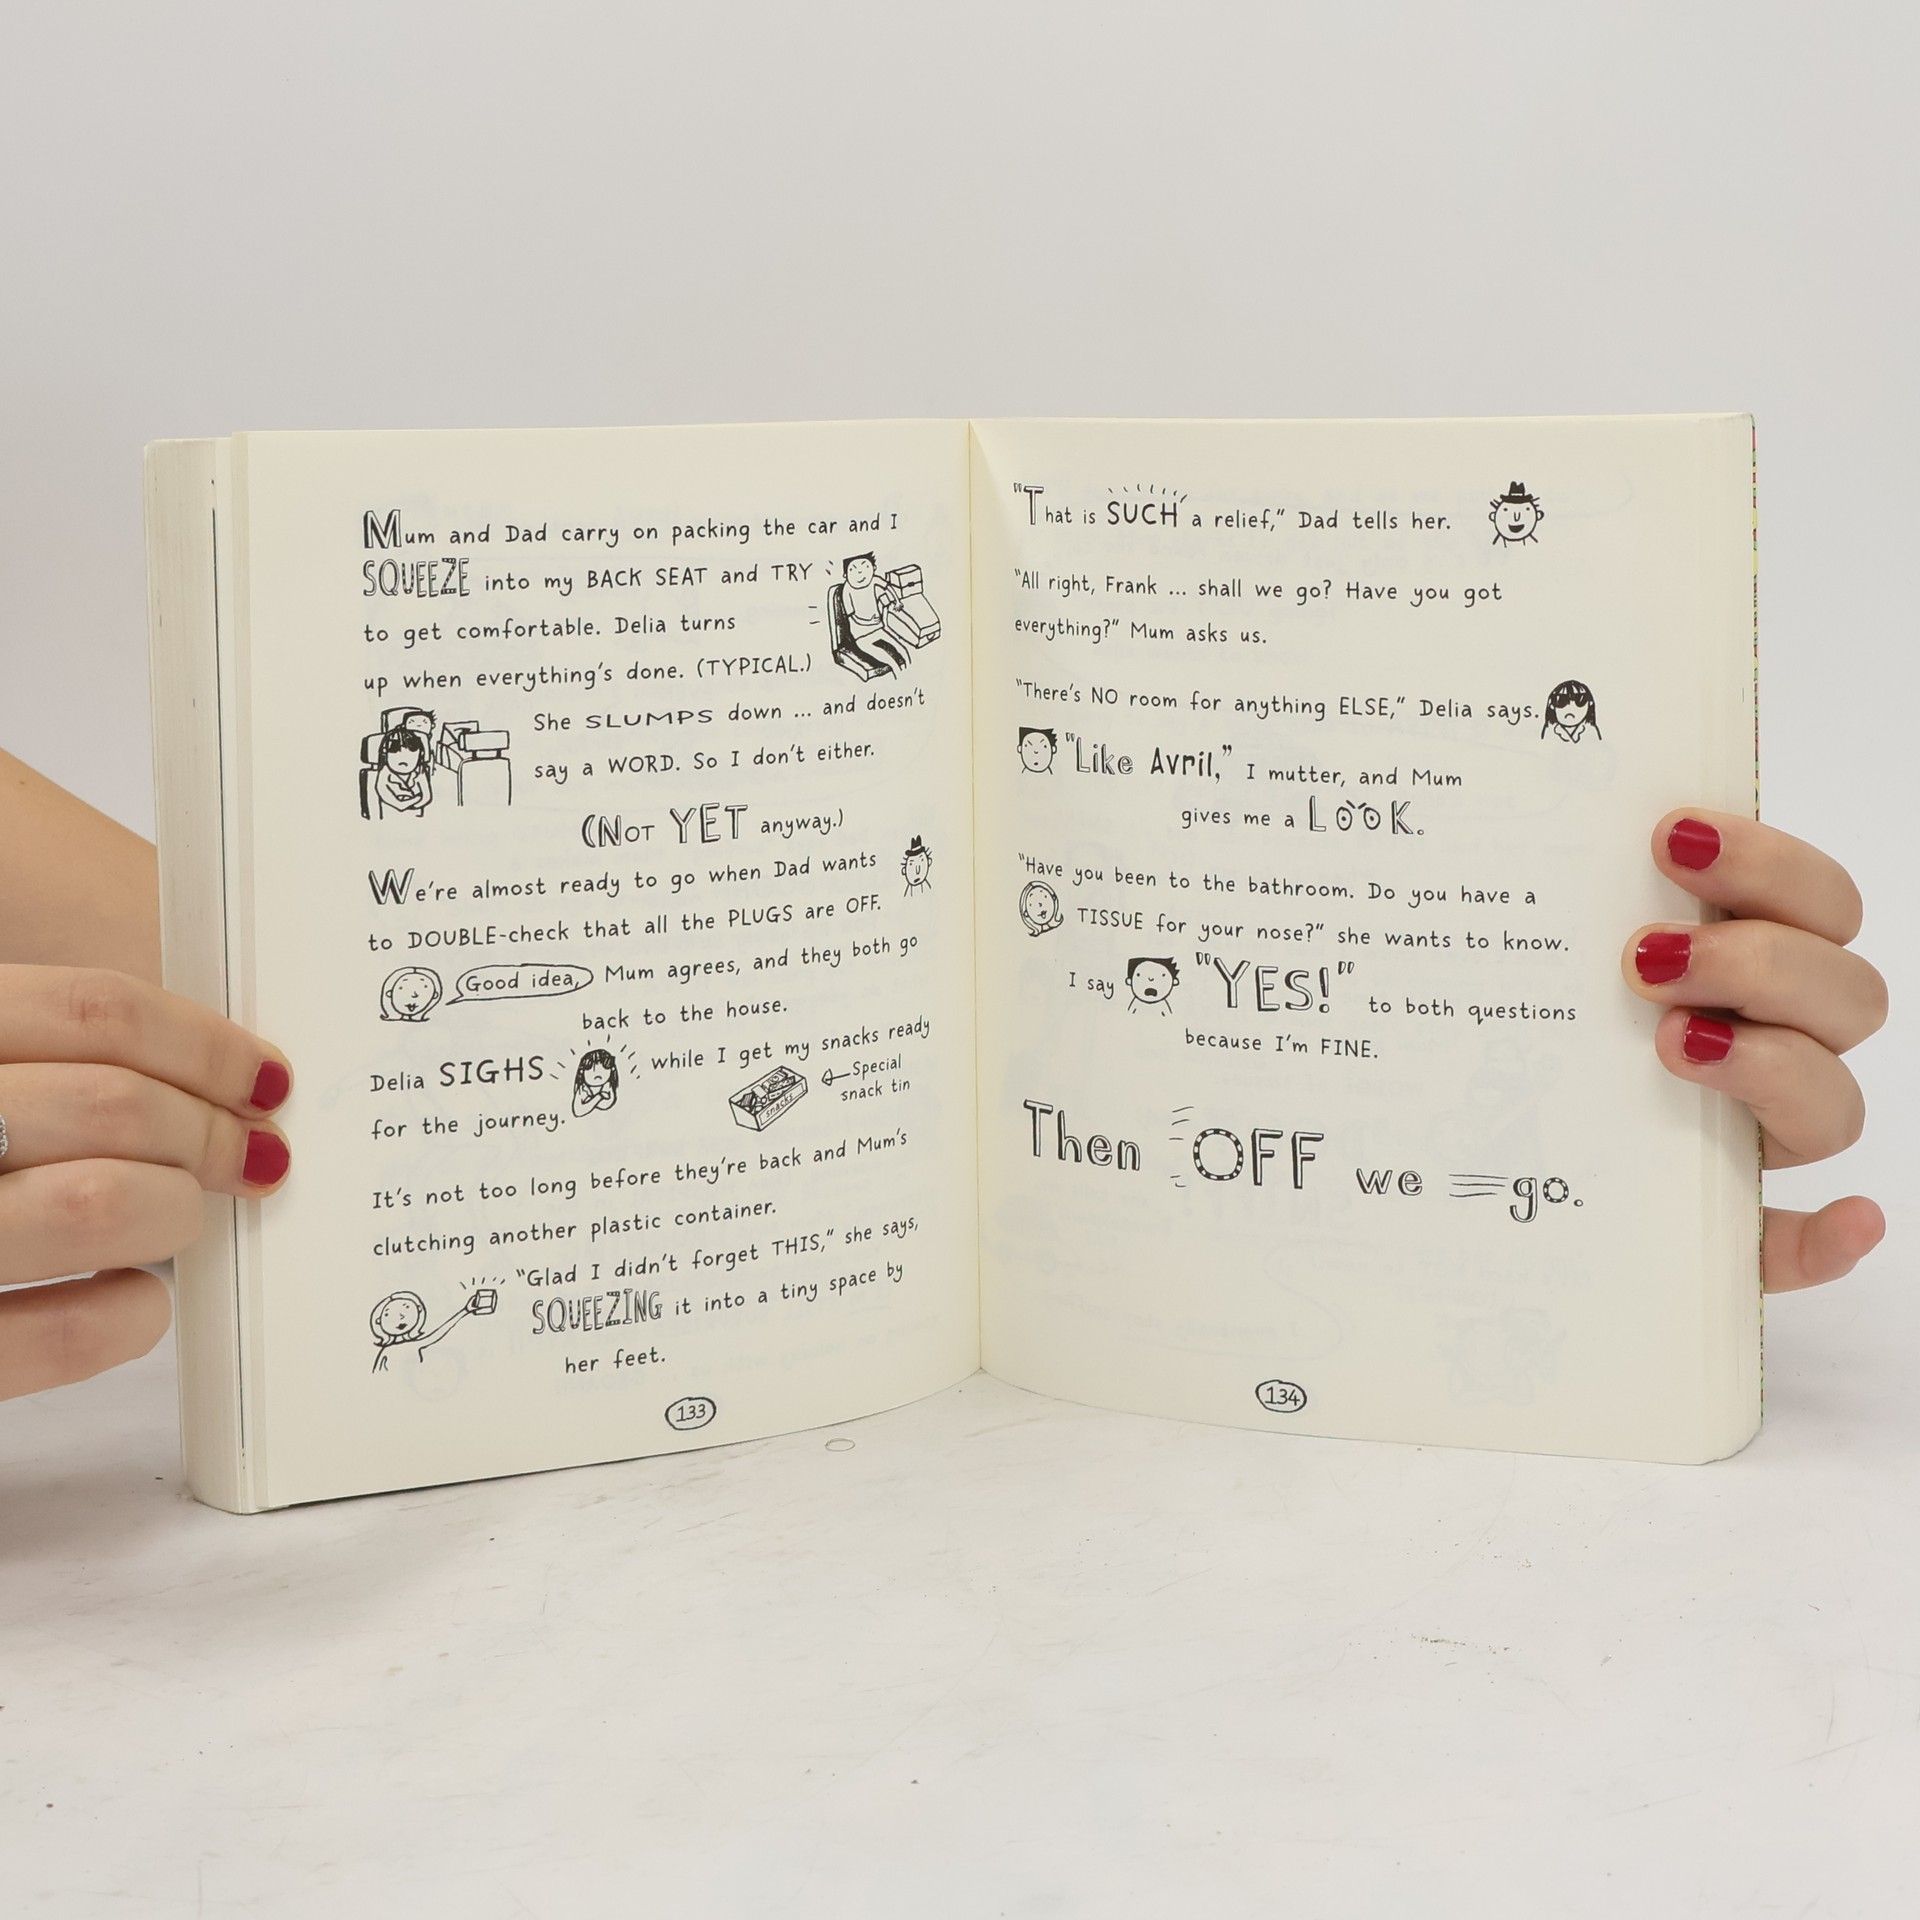 Mum and Dad carry on packing the car and I
SQUEEZE into my BACK SEAT and TRY
to get comfortable. Delia turns
up when everything's done. (TYPICAL.)
She SLUMPS down ... and doesn't
say a WORD. So I don't either.
(NOT YET anyway.)
We're almost ready to go when Dad wants
to DOUBLE-check that all the PLUGS are OFF.
Good idea, Mum agrees, and they both go
back to the house.
Delia SIGHS while I get my snacks ready
for the journey.
snacks
Special
snack tin
It's not too long before they're back and Mum's
clutching another plastic container.
"Glad I didn't forget THIS," she says,
SQUEEZING it into a tiny space by
her feet.
133
"That is SUCH a relief," Dad tells her.
"All right, Frank ... shall we go? Have you got
everything?" Mum asks us.
"There's NO room for anything ELSE," Delia says.
"Like Avril," I mutter, and Mum
gives me a LOOK.
"Have you been to the bathroom. Do you have a
TISSUE for your nose?" she wants to know.
I say "YES!" to both questions
because I'm FINE.
Then OFF we go.
134